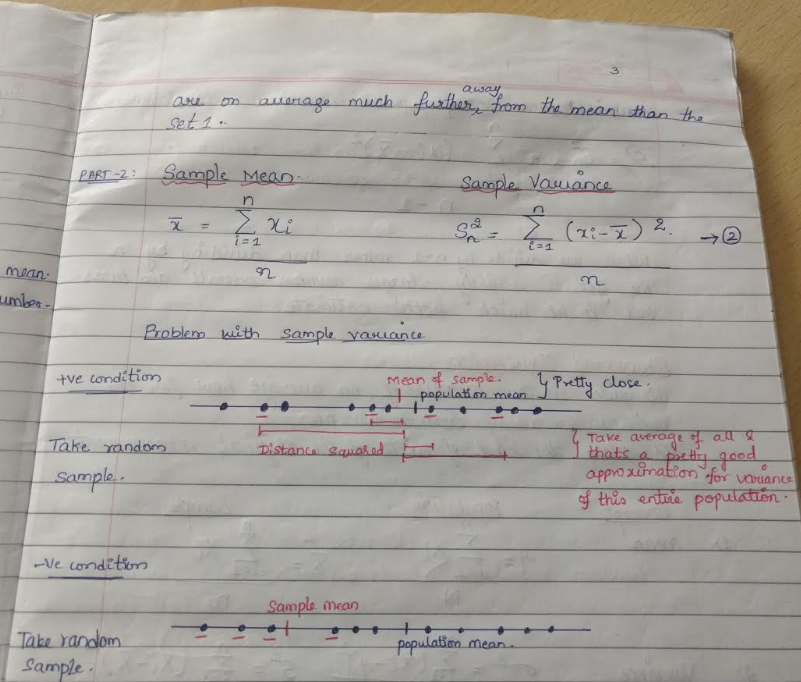 3
are on average much further, away from the mean than the
set 1.
PART-2: Sample Mean. Sample Variance
x̄ = Σ_{i=1}^{n} xi / n    S_n^2 = Σ_{i=1}^{n} (xi - x̄)2. / n → ②
mean.
umber-
Problem with sample variance
+ve condition
Mean of sample. } Pretty close.
population mean
Take random
sample.
Distance squared
{ Take average of all &
thats a pretty good
approximation for variance
of this entire population.
-ve condition
Sample mean
population mean.
Take random
sample.